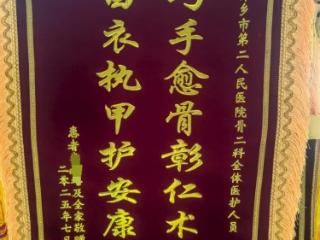 乡市第二人民医院骨二科全体医护人员
手愈骨彰仁术
衣执甲护安康
患者
及全家敬赠
二零二五年七月